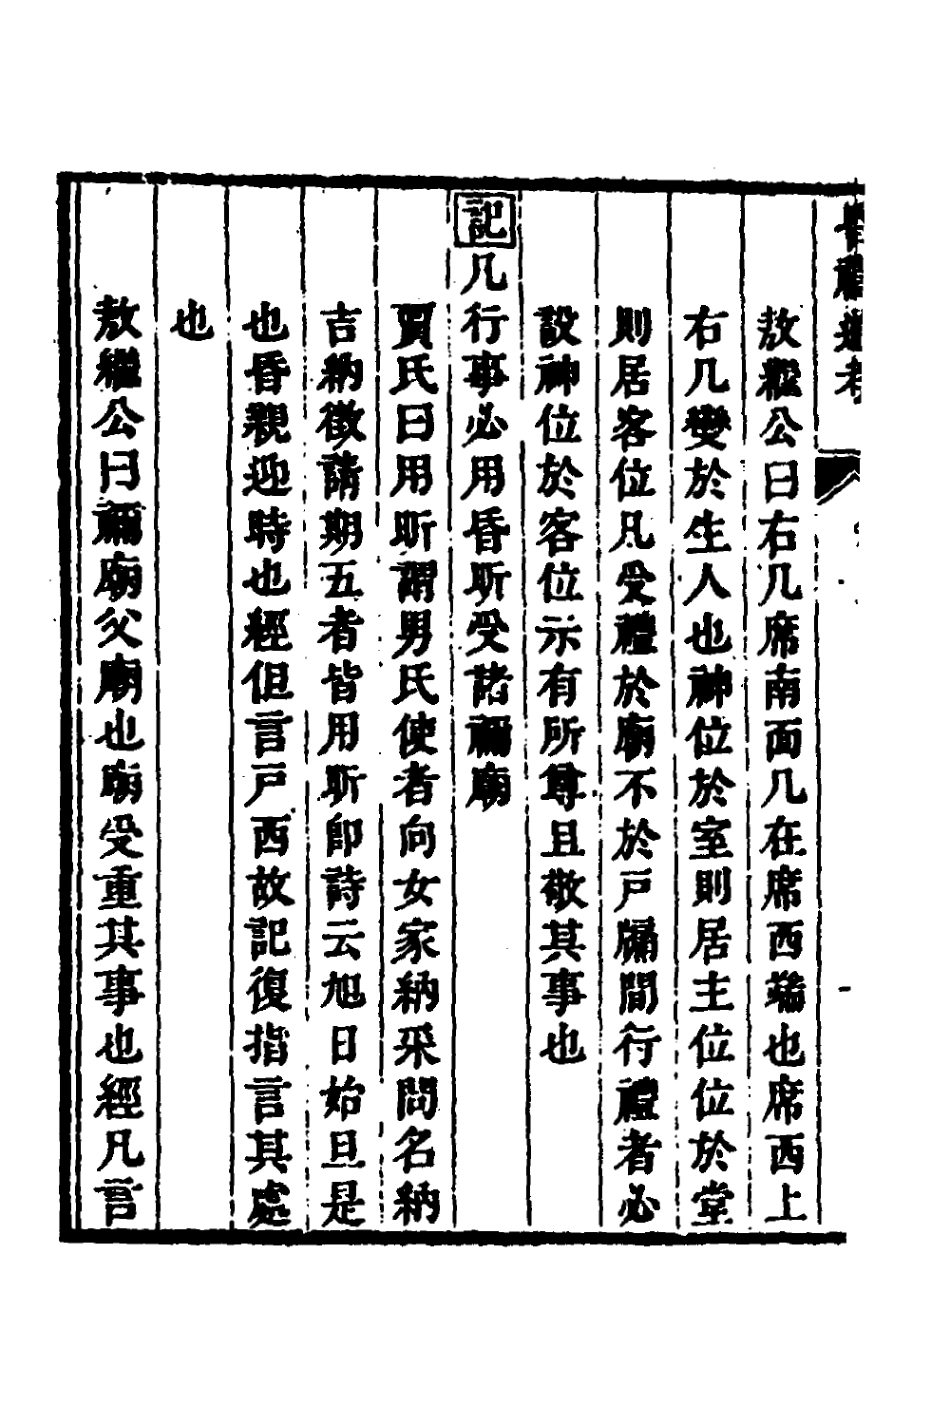 敖繼公曰右几席南面几在席西端也席西上
右几變於生人也神位於室則居主位位於堂
則居客位凡受禮於廟不於戸牖間行禮者必
設神位於客位示有所尊且敬其事也
記凡行事必用昏昕受諸禰廟
賈氏曰用昕謂男氏使者向女家納采問名納
吉納徵請期五者皆用昕卽詩云旭日始旦是
也昏親迎時也經但言戸西故記復指言其處
也
敖繼公曰禰廟父廟也廟受重其事也經凡言